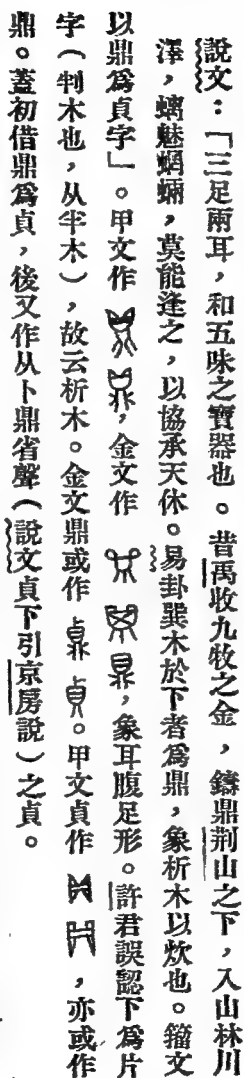 說文：「三足兩耳，和五味之寶器也。昔禹收九牧之金，鑄鼎荆山之下，入山林川
澤，螭魅蝄蜽，莫能逢之，以協承天休。易卦巽木於下者爲鼎，象析木以炊也。籀文
以鼎爲貞字」。甲文作，金文作，象耳腹足形。許君誤認下爲片
字（判木也，从半木），故云析木。金文鼎或作。甲文貞作，亦或作
鼎。蓋初借鼎爲貞，後又作从卜鼎省聲（說文貞下引京房說）之貞。